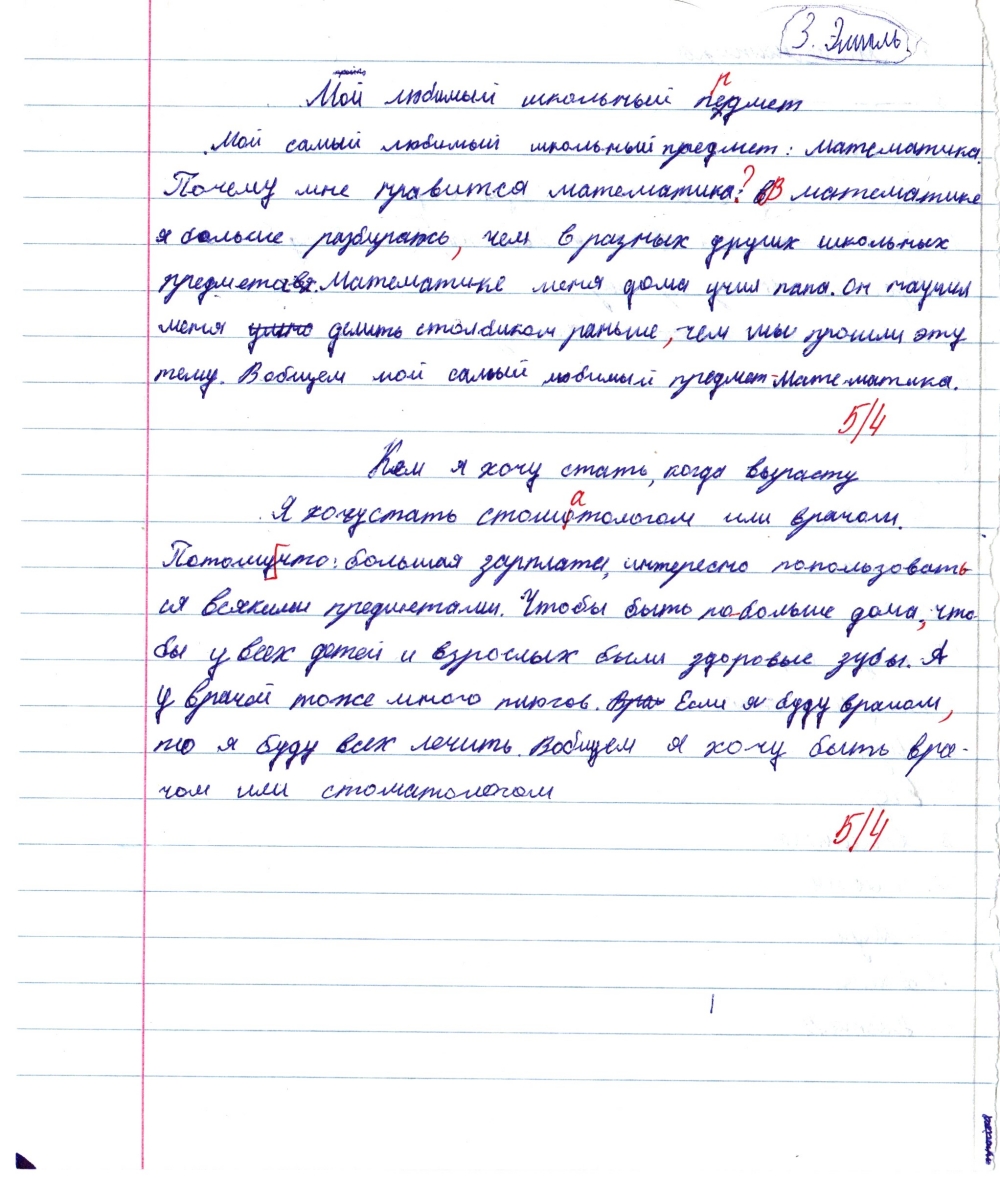 З. Эмиль
Мой любимый школьный педмет
р
Мой самый любимый школьный предмет: математика.
Почему мне нравится математика? В математике
я больше разбираюсь, чем в разных других школьных
предметах. Математике меня дома учил папа. Он научил
меня делить столбиком раньше, чем мы прошли эту
тему. Вобщем мой самый любимый предмет-математика.
5/4
Кем я хочу стать, когда вырасту
а
Я хочу стать стоматологом или врачом.
Потому что: большая зарплата, интересно попользовать
ся всякими предметами. Чтобы быть по-больше дома, что
бы у всех детей и взрослых были здоровые зубы. А
у врачей тоже много плюсов. Если я буду врачом,
то я буду всех лечить. Вобщем я хочу быть вра-
чом или стоматологом
5/4